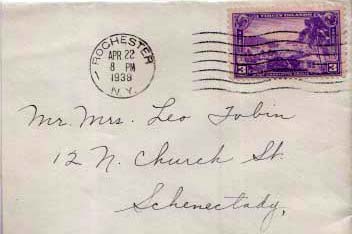 ROCHESTER
APR 22
8 PM
1938
N.Y.
VIRGIN ISLANDS
3 3
Mr. Mrs. Leo Tobin
12 N. Church St.
Schenectady,